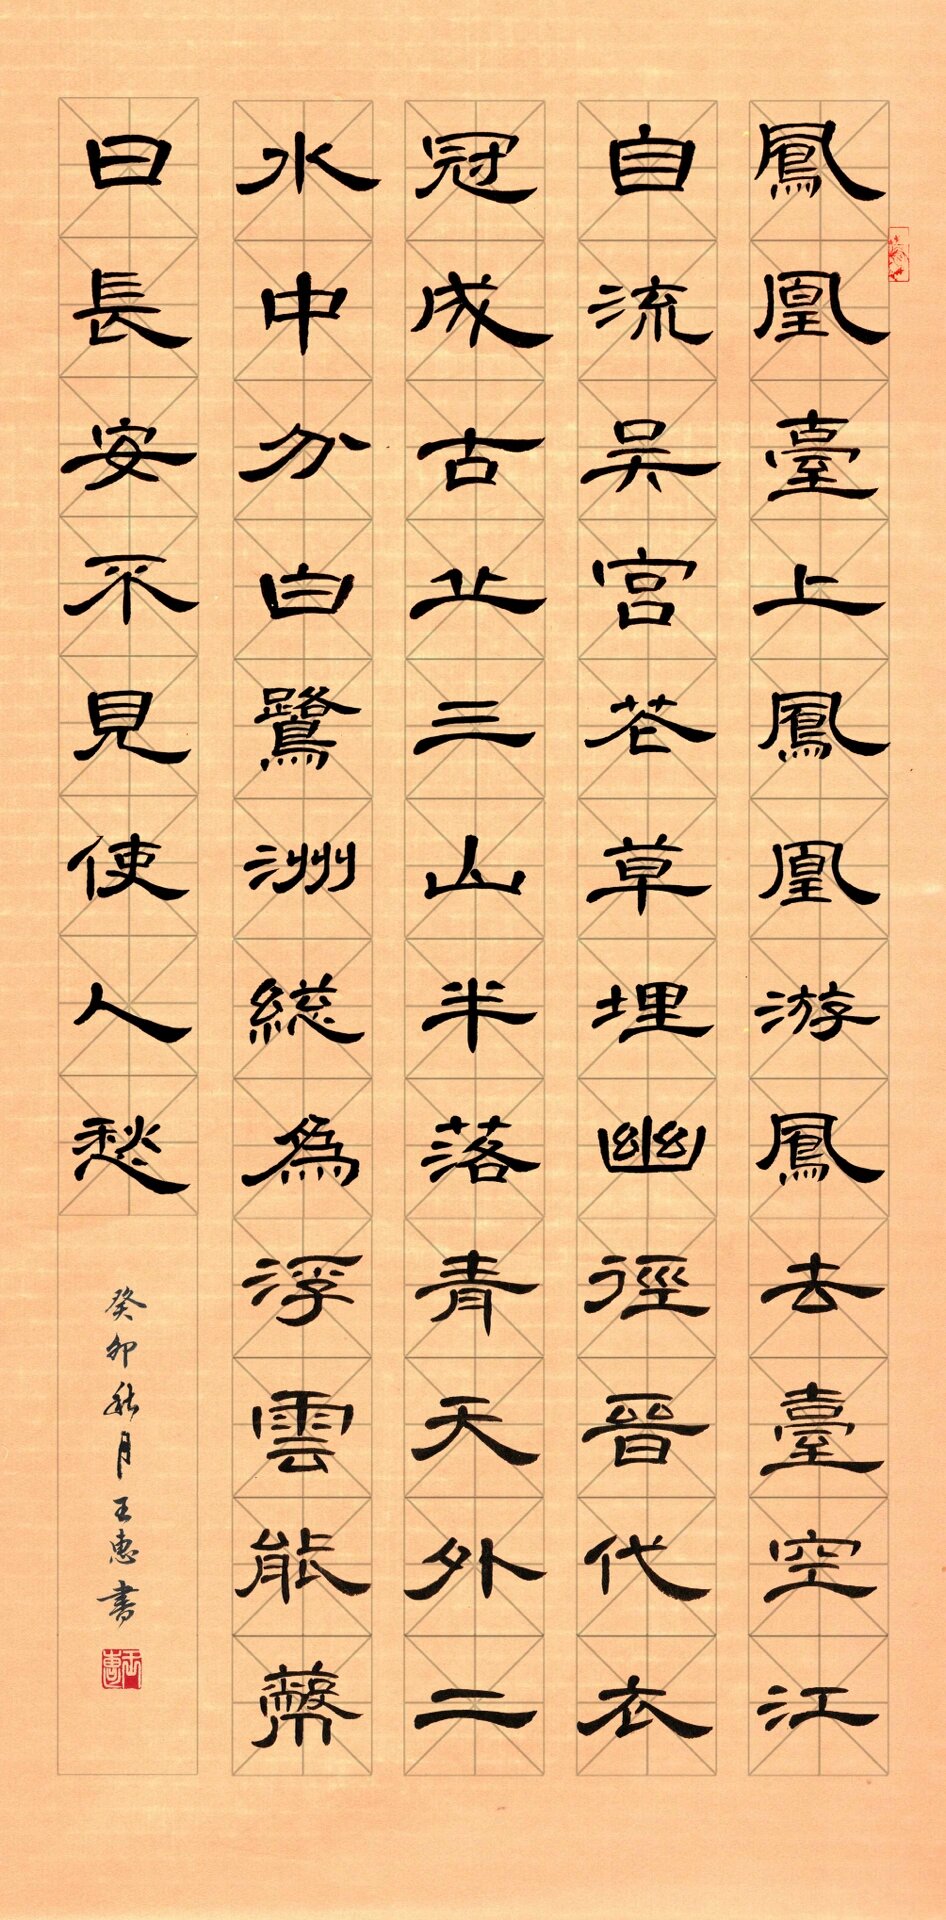 鳳凰臺上鳳凰游鳳去臺空江
自流吳宮花草埋幽徑晉代衣
冠成古丘三山半落青天外二
水中分白鷺洲緫為浮雲能蔽
日長安不見使人愁
癸卯秋月王惠書